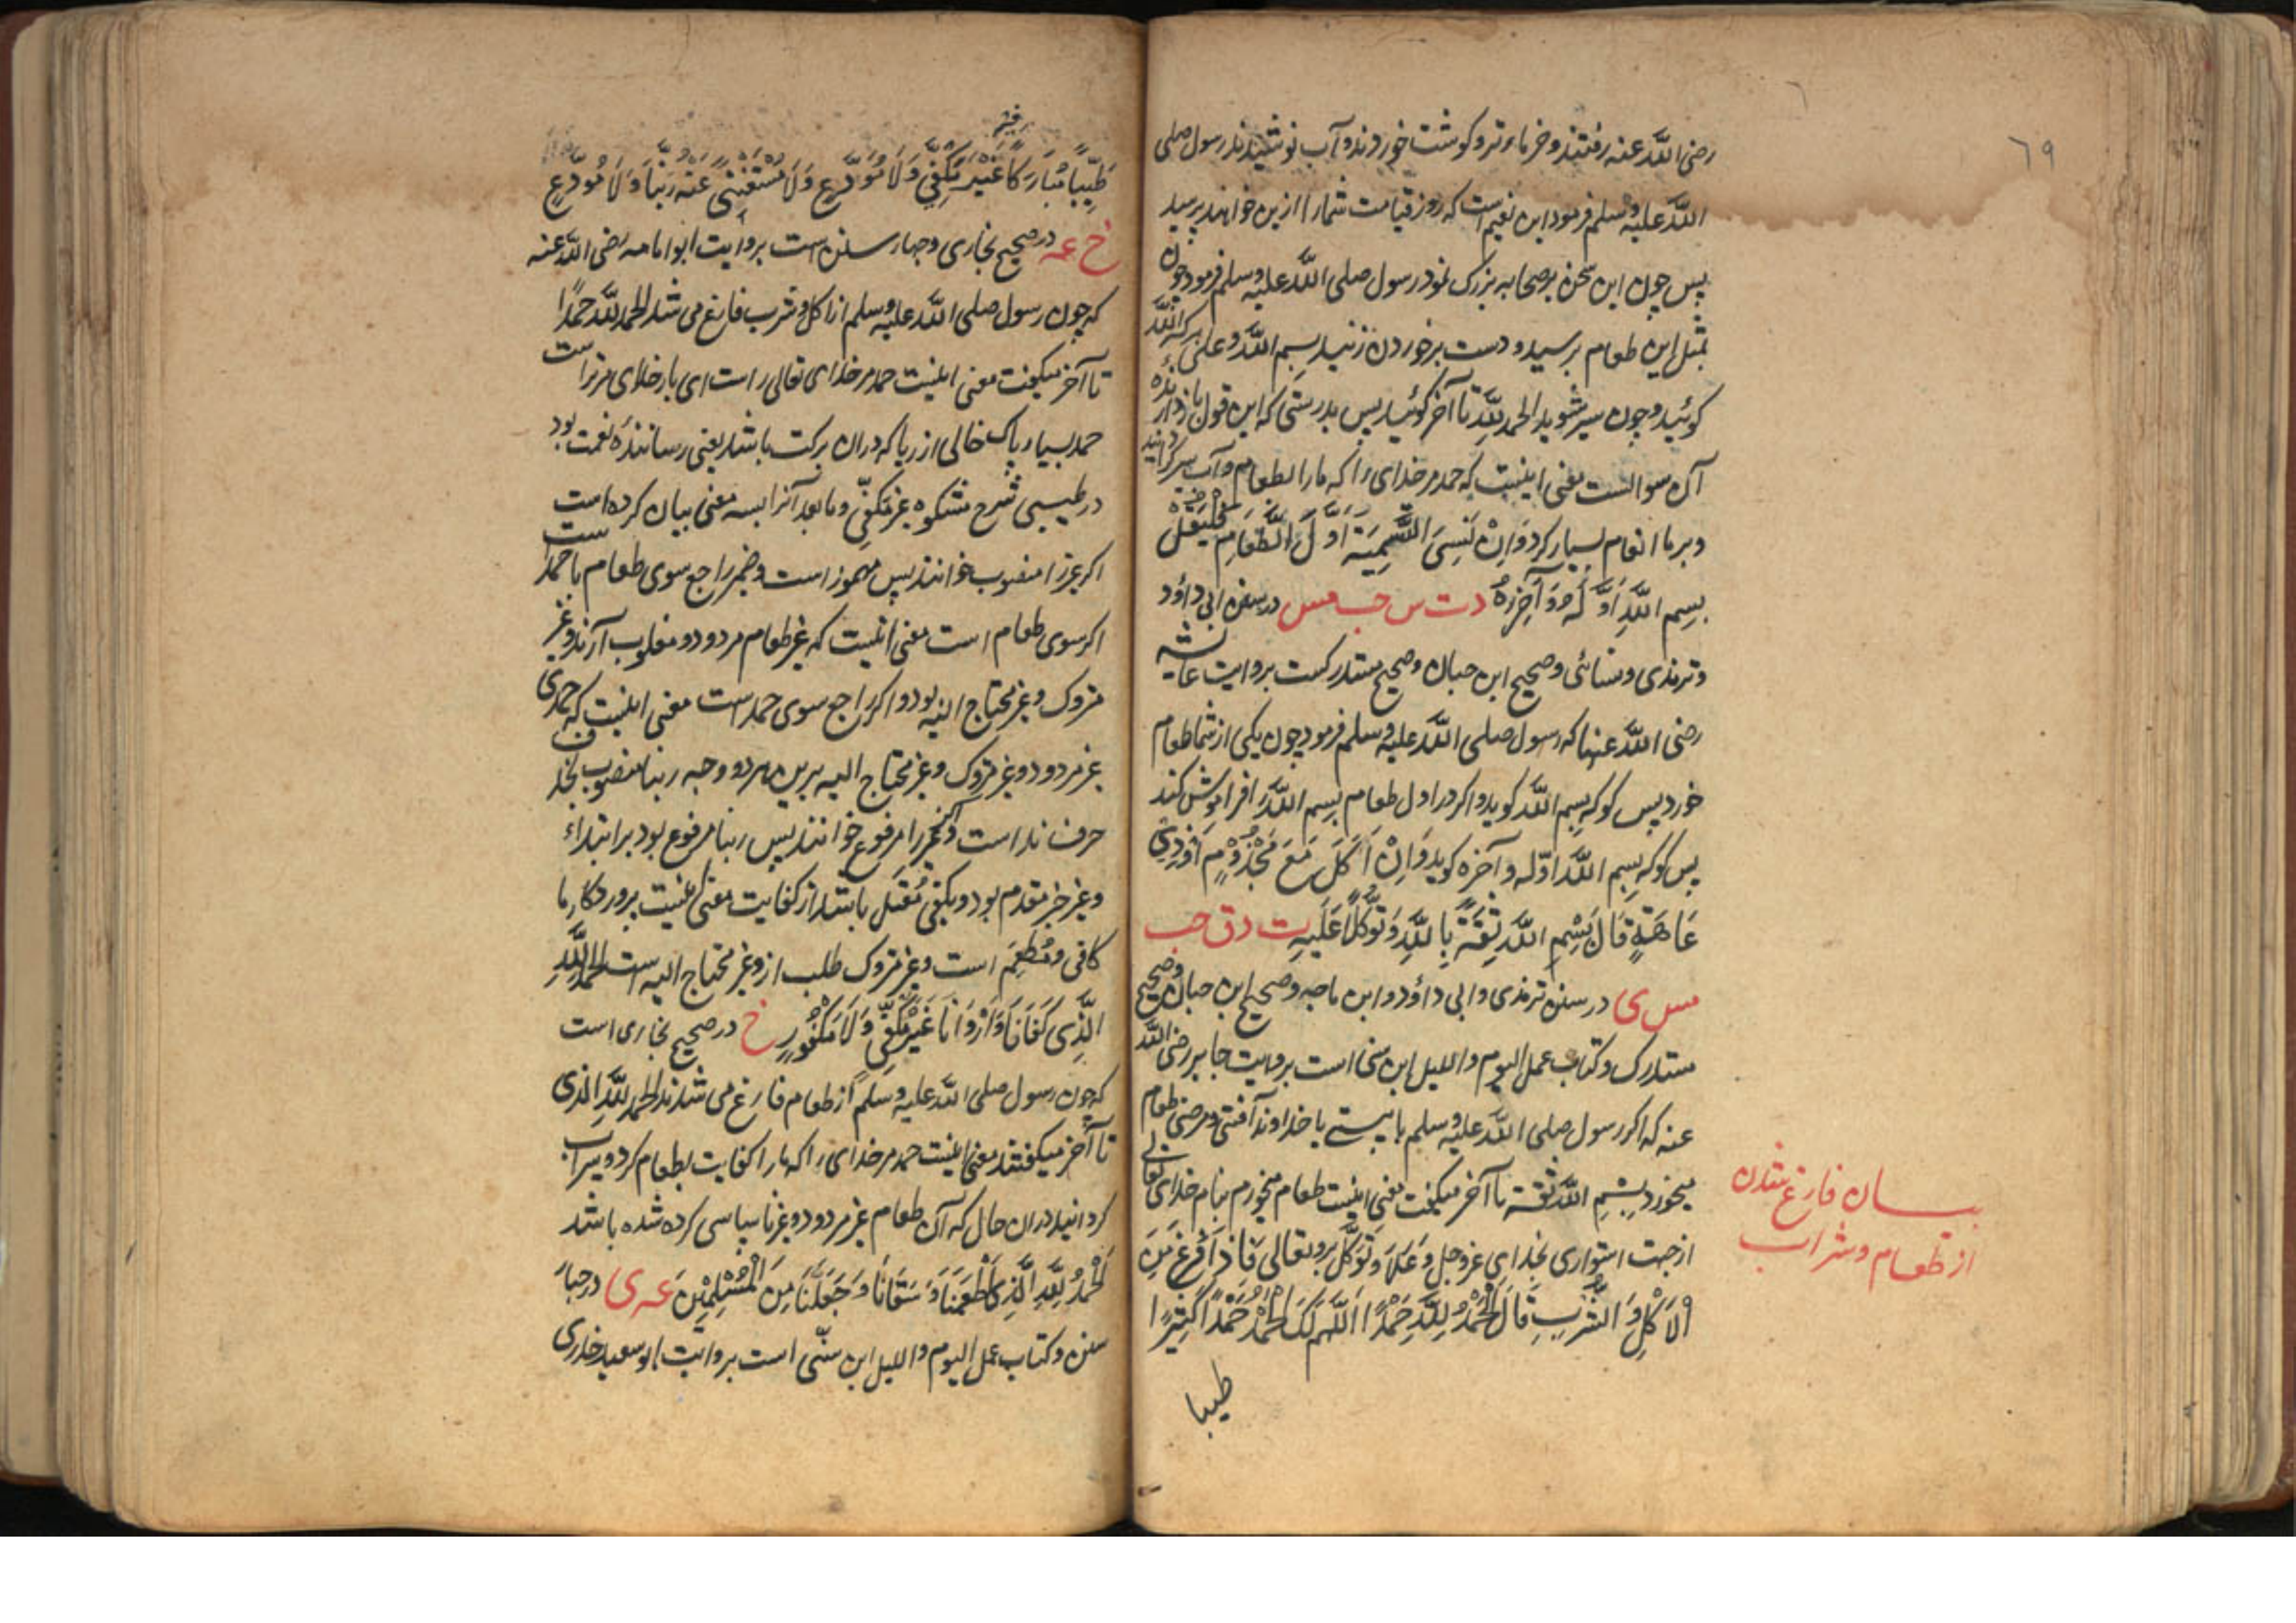 ٦٩
رضی الله عنه رفتند و خرماء تر و کوشت خوردند و آب نوشیدند رسول صلی
الله علیه وسلم فرمود این نعیم است که روز قیامت شما را ازین خواهند پرسید
پس چون این سخن بر صحابه بزرک نمود رسول صلی الله علیه وسلم فرمود چون
بمثل این طعام برسید و دست برخوردن زنید بسم الله وعلی برکة الله
کوئید و چون سیر شوید الحمد لله تا آخر کوئید پس بدرستی که این قول باز دارنده
آن سوالست معنی اینست که حمد مر خدای را که ما را بطعام و آب سیر کردانید
و بر ما انعام بسیار کرد وَاِنْ نَسِیَ التَّسْمِیَةَ اَوَّلَ الطَّعَامِ فَلْیَقُلْ
بِسمِ اللّٰهِ اَوَّلَهُ وَآخِرَهُ د ت س حب مس در سنن ابی داؤد
و ترمذی و نسائی و صحیح ابن حبان و صحیح مستدرکست بروایت عائشه
رضی الله عنها که رسول صلی الله علیه وسلم فرمود چون یکی از شما طعام
خورد پس کو که بسم الله کوید و اکر در اول طعام بسم الله را فراموش کند
پس کو که بسم الله اوّله وآخره کوید وَاِنْ اَکَلَ مَعَ مَجْذُوْمٍ اَوْ ذِیْ
عَاهَةٍ قَالَ بِسْمِ اللّٰهِ ثِقَةً بِاللّٰهِ وَتَوَکُّلًا عَلَیْهِ ت د ق حب
مس ی در سنن ترمذی وابی داؤد و ابن ماجه و صحیح ابن حبان و صحیح
مستدرک و کتاب عمل الیوم واللیل ابن سنی است بروایت جابر رضی الله
عنه که اکر رسول صلی الله علیه وسلم با پیسے یا خداوند آفتی و مرضی طعام
میخورد بِسْمِ الله ثقة تا آخر میکفت معنی اینست طعام میخورم بنام خدای تعالی
از جهت استواری بخدای عزوجل و توکّل برو تعالی فَاِذَا فَرَغَ مِنَ
الْاَکْلِ وَالشُّرْبِ قَالَ الْحَمْدُ لِلّٰهِ حَمْدًا اَللّٰهُمَّ لَکَ الْحَمْدُ حَمْدًا کَثِیْرًا
طیبا
بیان فارغ شدن
از طعام و شراب
طَیِّبًا مُبَارَکًا فِیْهِ غَیْرَ مَکْفِیٍّ وَلَا مُوَدَّعٍ وَلَا مُسْتَغْنًی عَنْهُ رَبَّنَا وَلَا مُوَدَّعٍ
خ عه در صحیح بخاری و چهار سنن است بروایت ابو امامه رضی الله عنه
که چون رسول صلی الله علیه وسلم از اکل و شرب فارغ می شد الحمد لله حمدًا
تا آخر میکفت معنی اینست حمد مر خدای تعالی راست ای بار خدای مر تراست
حمد بسیار پاک خالی از ریا که دران برکت باشد یعنی رسانندهٔ نعمت بود
در طیبی شرح مشکوه غیر مکفیّ و ما بعد آنرا بسه معنی بیان کرده است
اکر غیر را منصوب خوانند پس مهموز است و ضمیر راجع سوی طعام یا حمد است
اکر سوی طعام است معنی اینست که غیر طعام مردود و مقلوب آرند و غیر
متروک و غیر محتاج الیه بود و اکر راجع سوی حمد است معنی اینست که حمدی
غیر مردود و غیر متروک و غیر محتاج الیه برین هر دو وجه ربنا منصوب بحذف
حرف نداست و اکر غیر را مرفوع خوانند پس ربنا مرفوع بود بر ابتداء
و غیر خبر مقدم بود و مکفی مُعْتَل باشد از کفایت معنی اینست پروردکار ما
کافی و مُطعِم است و غیر متروک طلب ازو و غیر محتاج الیه است الحمد لِلّٰهِ
الَّذِی کَفَانَا وَاَرْوَانَا غَیْرَ مَکْفِیٍّ وَلَا مَکْفُورٍ خ در صحیح بخاری است
که چون رسول صلی الله علیه وسلم از طعام فارغ می شدند الحمد لله الذی
تا آخر میکفتند معنی اینست حمد مر خدای را که ما را کفایت بطعام کرد و سیراب
کردانید دران حال که آن طعام غیر مردود و غیر ناسپاسی کرده شده باشد
اَلْحَمْدُ لِلّٰهِ الَّذِی اَطْعَمَنَا وَسَقَانَا وَجَعَلَنَا مِنَ الْمُسْلِمِیْنَ عه ی در چهار
سنن و کتاب عمل الیوم واللیل ابن سنّی است بروایت ابو سعید خدری